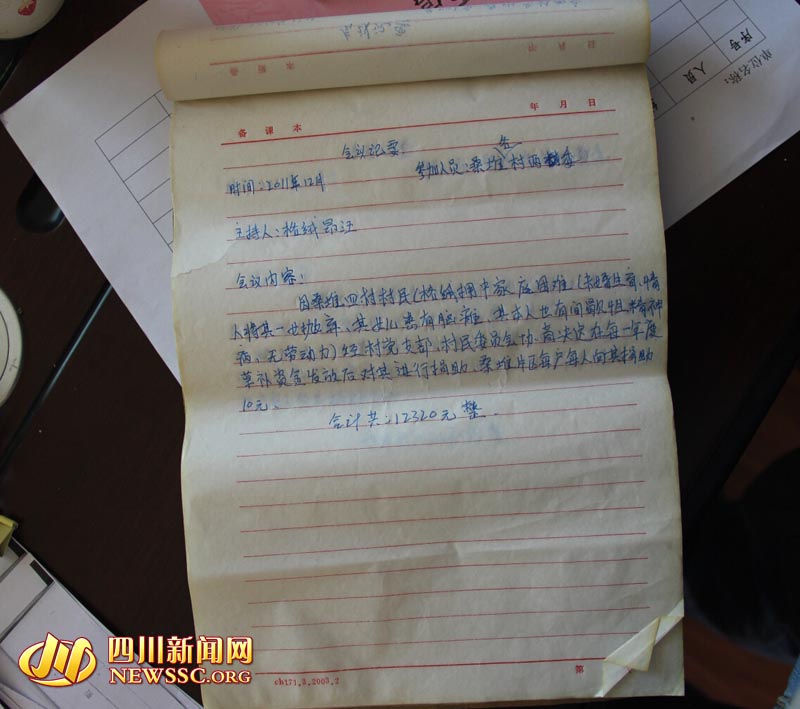 单位名称:
序号
人员
备课本
年 月 日
会议记要
时间:2011年12月
参加人员:桑堆村两委
各
主持人:格绒昂汪
会议内容:
因桑堆四村村民(格绒拥中家庭困难(未婚生育,
人将其一世抛弃、其女儿患有脑瘫、其本人也有间
病,无劳动力)经村党支部、村民委员会协商决定在每一年度
草补资金发放后对其进行捐助、桑堆片区每户每人向其捐助
10元、
合计共:12320元整.
第
cb171.3.2003.2
四川新闻网
NEWSSC.ORG